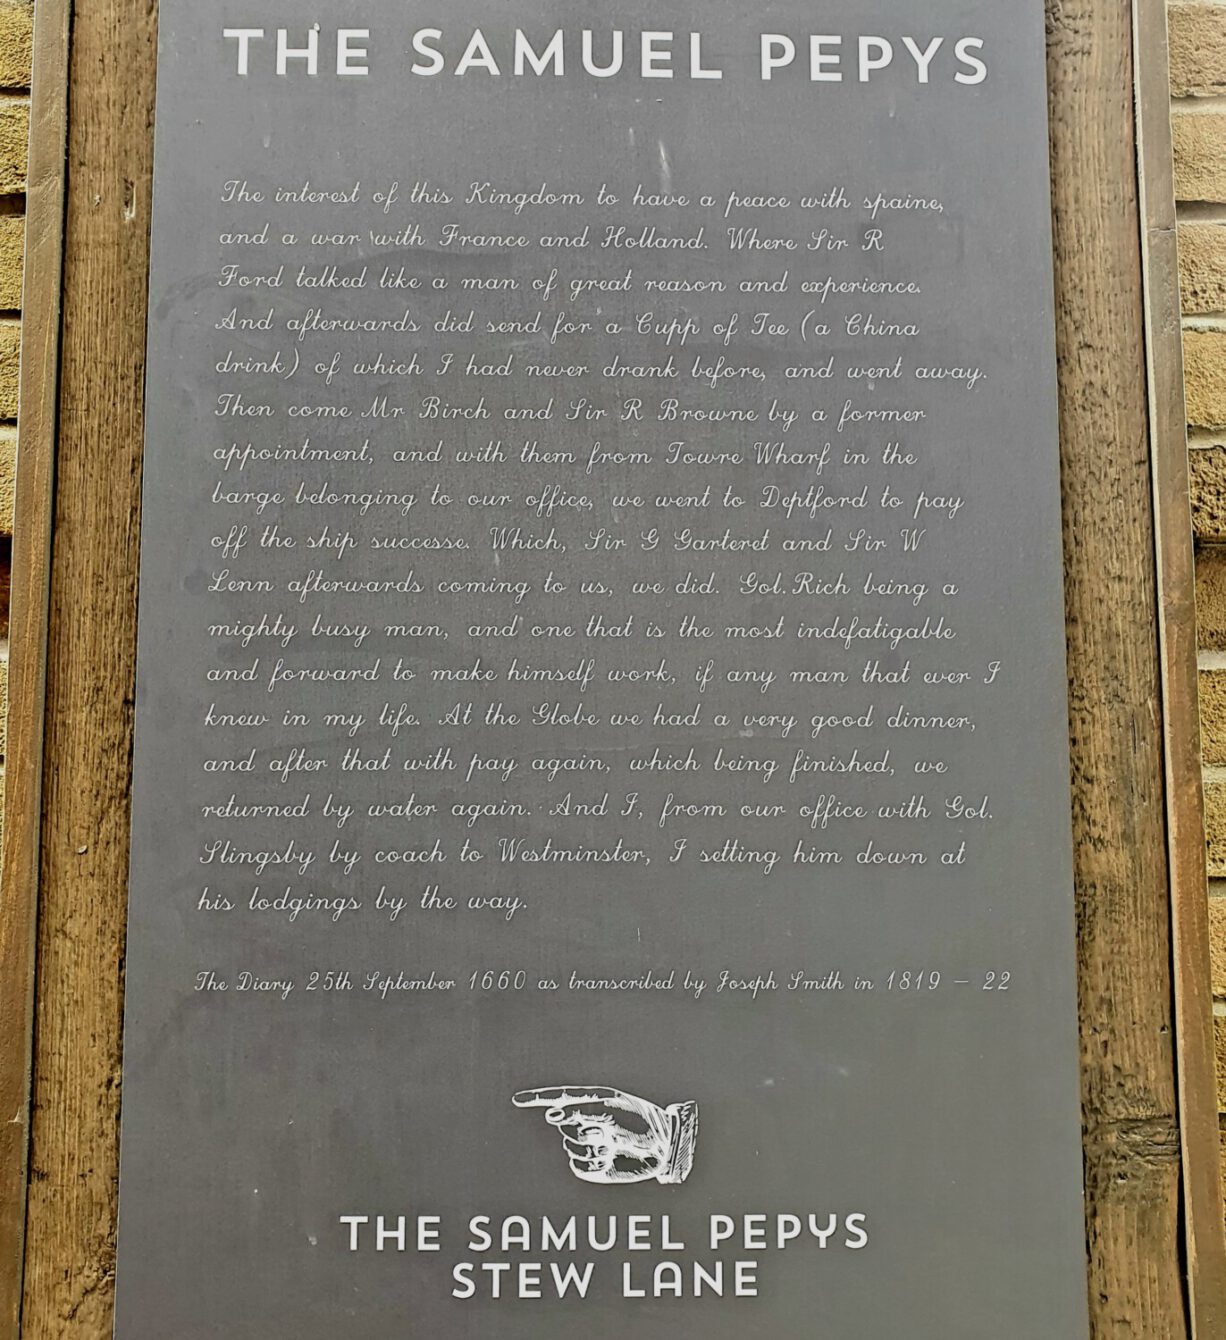 THE SAMUEL PEPYS
The interest of this Kingdom to have a peace with spaine,
and a war with France and Holland. Where Sir R
Ford talked like a man of great reason and experience.
And afterwards did send for a Cupp of Tee (a China
drink) of which I had never drank before, and went away.
Then come Mr Birch and Sir R Browne by a former
appointment, and with them from Towre Wharf in the
barge belonging to our office, we went to Deptford to pay
off the ship successe. Which, Sir G Garteret and Sir W
Lenn afterwards coming to us, we did. Gol. Rich being a
mighty busy man, and one that is the most indefatigable
and forward to make himself work, if any man that ever I
knew in my life. At the Globe we had a very good dinner,
and after that with pay again, which being finished, we
returned by water again. And I, from our office with Gol.
Slingsby by coach to Westminster, I setting him down at
his lodgings by the way.
The Diary 25th September 1660 as transcribed by Joseph Smith in 1819 – 22
THE SAMUEL PEPYS
STEW LANE